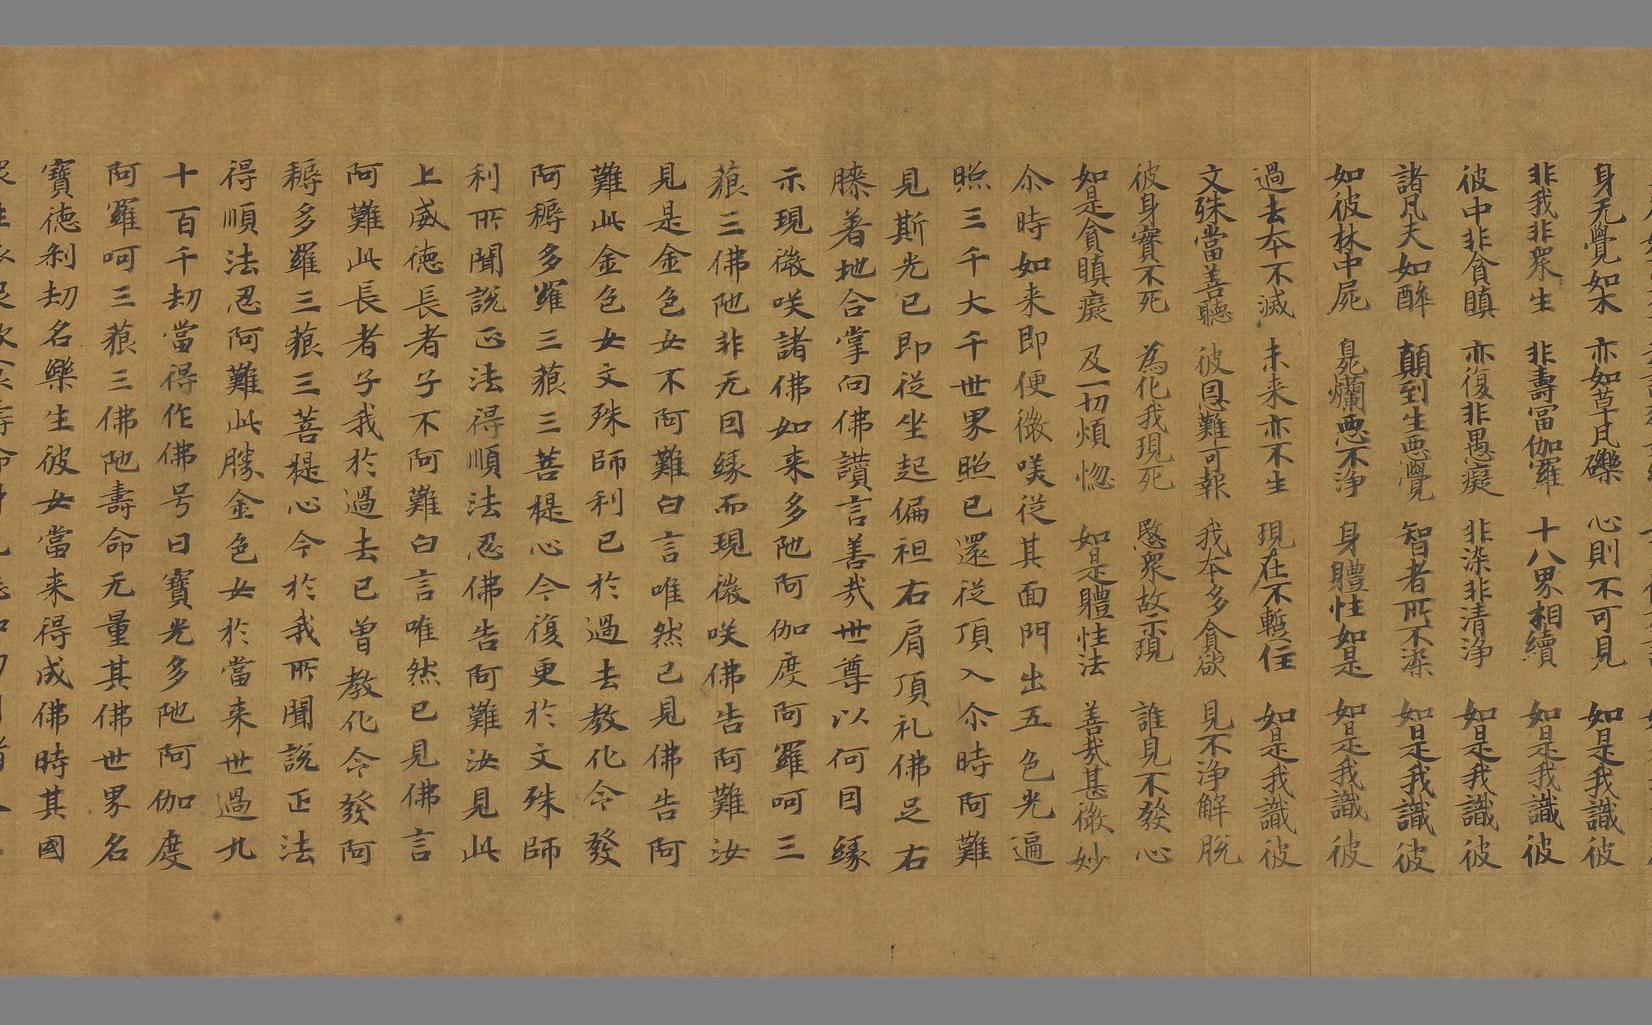 身无覺如木 亦如草凡礫 心則不可見 如是我識彼
非我非眾生 非壽富伽羅 十八界相續 如是我識彼
彼中非貪瞋 亦復非愚癡 非染非清淨 如是我識彼
諸凡夫如醉 顛到生惡覺 智者所不染 如是我識彼
如彼林中屍 臭爛惡不淨 身體性如是 如是我識彼
過去本不滅 未来亦不生 現在不暫住 如是我識彼
文殊當善聽 彼恩難可報 我本多貪欲 見不淨解脫
彼身實不死 為化我現死 愍眾故示現 誰見不發心
如是貪瞋癡 及一切煩惱 如是體性法 善哉甚微妙
尒時如来即便微咲從其面門出五色光遍
照三千大千世界照已還從頂入尒時阿難
見斯光已即從坐起偏袒右肩頂礼佛足右
膝著地合掌向佛讚言善哉世尊以何因緣
示現微咲諸佛如来多陁阿伽度阿羅呵三
藐三佛陁非无因緣而現微咲佛告阿難汝
見是金色女不阿難白言唯然已見佛告阿
難此金色女文殊師利已於過去教化令發
阿耨多羅三藐三菩提心今復更於文殊師
利所聞說正法得順法忍佛告阿難汝見此
上威德長者子不阿難白言唯然已見佛言
阿難此長者子我於過去已曾教化令發阿
耨多羅三藐三菩提心今於我所聞說正法
得順法忍阿難此勝金色女於當来世過九
十百千劫當得作佛号曰寶光多陁阿伽度
阿羅呵三藐三佛陁壽命无量其佛世界名
寶德剎劫名樂生彼女當来得成佛時其國